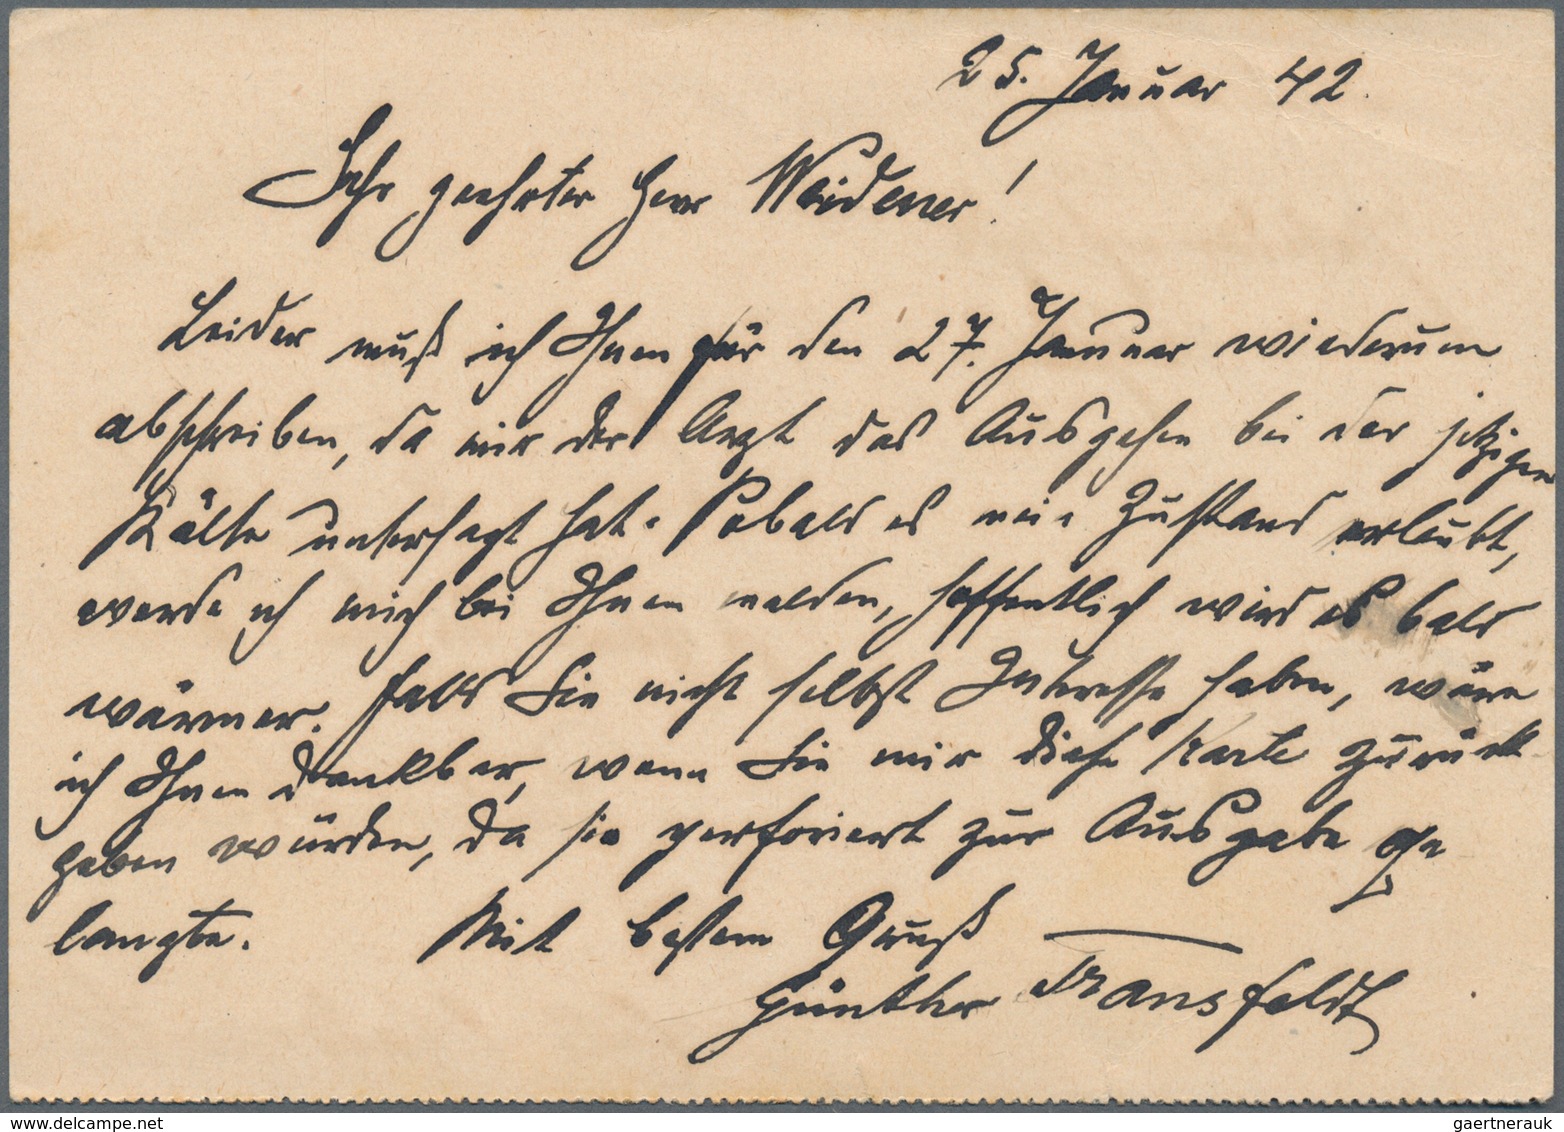 25. Januar 42.
Sehr geehrter Herr Weidener!
Leider muß ich Ihnen für den 27. Januar wiederum
abschreiben, da mir der Arzt das Ausgehen bei der jetzigen
Kälte untersagt hat. Sobald es mein Zustand erlaubt,
werde ich mich bei Ihnen melden, hoffentlich wird es bald
wärmer. Falls Sie nicht selbst Interesse haben, wäre
ich Ihnen dankbar, wenn Sie mir diese Karte zurück
geben würden, da sie perforiert zur Ausgabe ge
langte. Mit bestem Gruß
Günther Transfeldt
gaertnerauk
www.delcampe.net